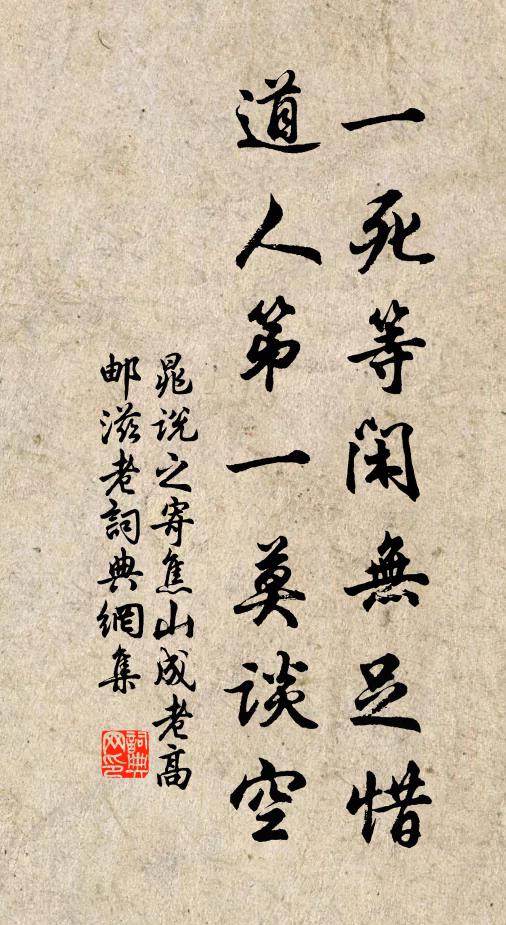 一死等閑無足惜
道人第一莫談空
晁說之寄焦山成老高
邮滋老詞典網集
詞典網印